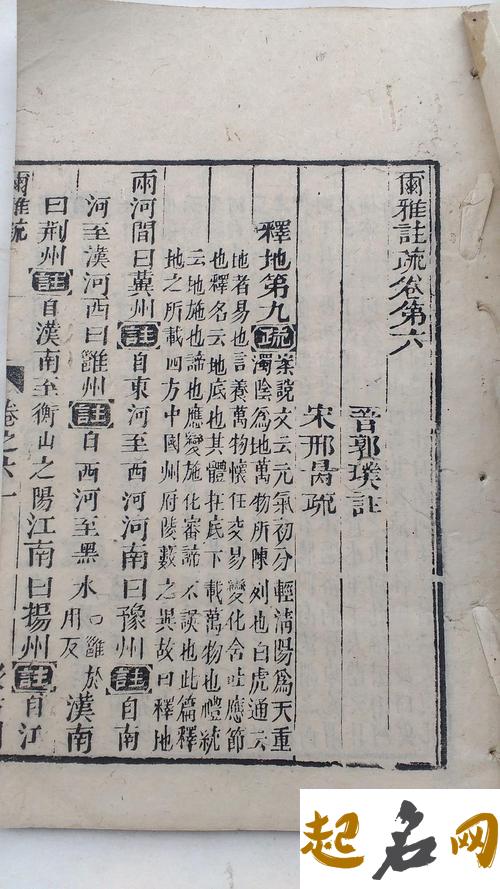 爾雅註疏卷第六
晉郭璞註
宋邢昺疏
釋地第九疏案說文云元氣初分輕清陽爲天重
濁陰爲地萬物所陳列也白虎通云
地者易也言養萬物懷任交易變化含吐應節
也釋名云地底也其體在底下載萬物也禮統
云地施也諦也應變施化審諦不誤也此篇釋
地之所載四方中國州府陵藪之異故曰釋地
兩河間曰冀州註自東河至西河河南曰豫州註自南
河至漢河西曰雝州註自西河至黑水○雝於用反漢南
曰荆州註自漢南至衡山之陽江南曰揚州註自江
爾雅疏
卷之六
一
起名网